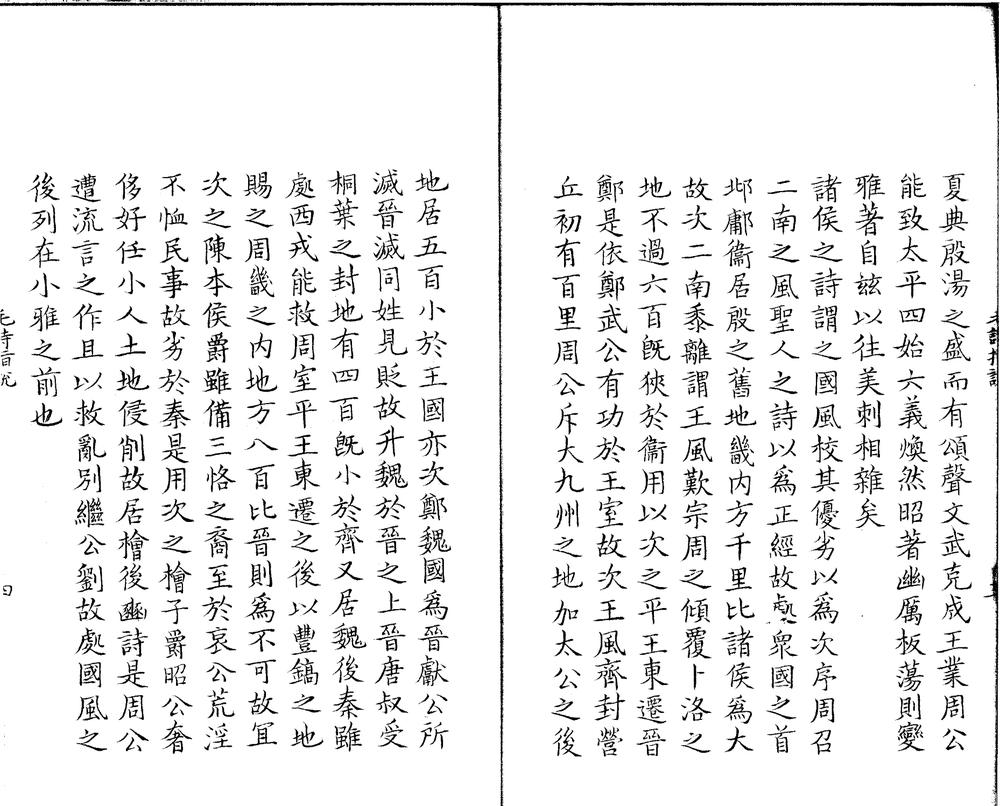 夏典殷湯之盛而有頌聲文武克成王業周公
能致太平四始六義煥然昭著幽厲板蕩則變
雅著自兹以往美刺相雜矣
諸侯之詩謂之國風校其優劣以爲次序周召
二南之風聖人之詩以爲正經故處衆國之首
邶鄘衞居殷之舊地畿内方千里比諸侯爲大
故次二南黍離謂王風歎宗周之傾覆卜洛之
地不過六百旣狹於衞用以次之平王東遷晉
鄭是依鄭武公有功於王室故次王風齊封營
丘初有百里周公斥大九州之地加太公之後
地居五百小於王國亦次鄭魏國爲晉獻公所
滅晉滅同姓見貶故升魏於晉之上晉唐叔受
桐葉之封地有四百旣小於齊又居魏後秦雖
處西戎能救周室平王東遷之後以豐鎬之地
賜之周畿之内地方八百比晉則爲不可故冝
次之陳本侯爵雖備三恪之裔至於哀公荒淫
不恤民事故劣於秦是用次之檜子爵昭公奢
侈好任小人土地侵削故居檜後豳詩是周公
遭流言之作且以救亂别繼公劉故處國風之
後列在小雅之前也